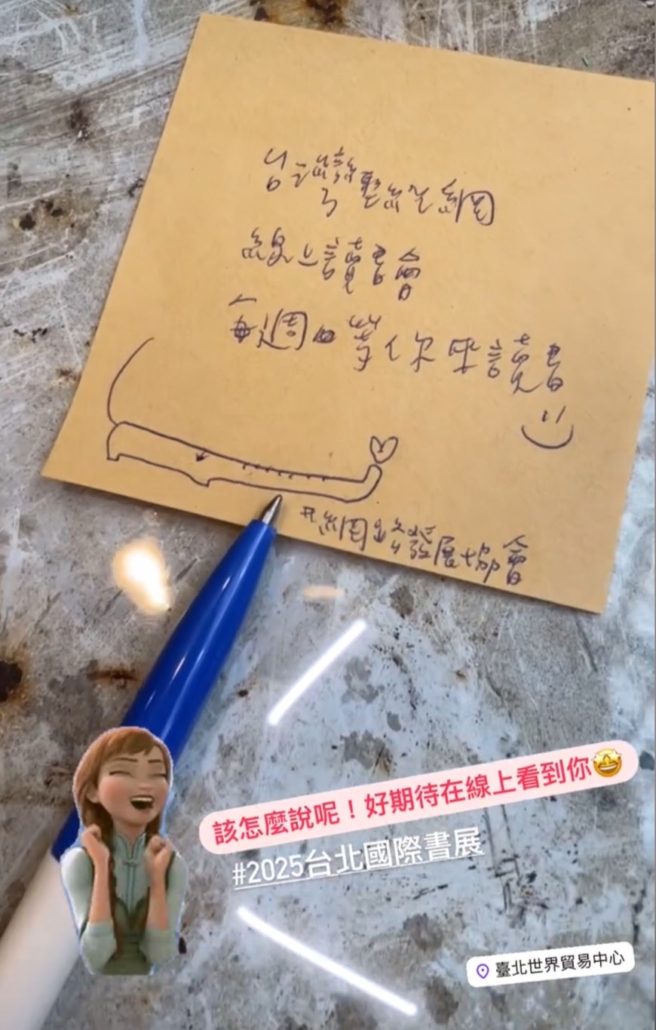 台灣聖經網
線上讀書會
每週四等你來讀書
#網路發展協會
該怎麼說呢！好期待在線上看到你🤩
#2025台北國際書展
臺北世界貿易中心